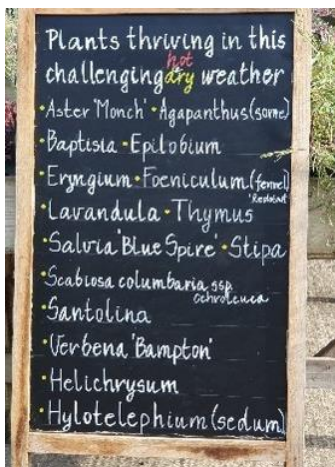 Plants thriving in this
hot
challenging dry weather
• Aster 'Monch' • Agapanthus (some)
• Baptisia • Epilobium
• Eryngium • Foeniculum (fennel)
• Lavandula • Thymus
• Salvia 'Blue Spire' • Stipa
• Scabiosa columbaria ssp.
ochroleuca
• Santolina
• Verbena 'Bampton'
• Helichrysum
• Hylotelephium (sedum)